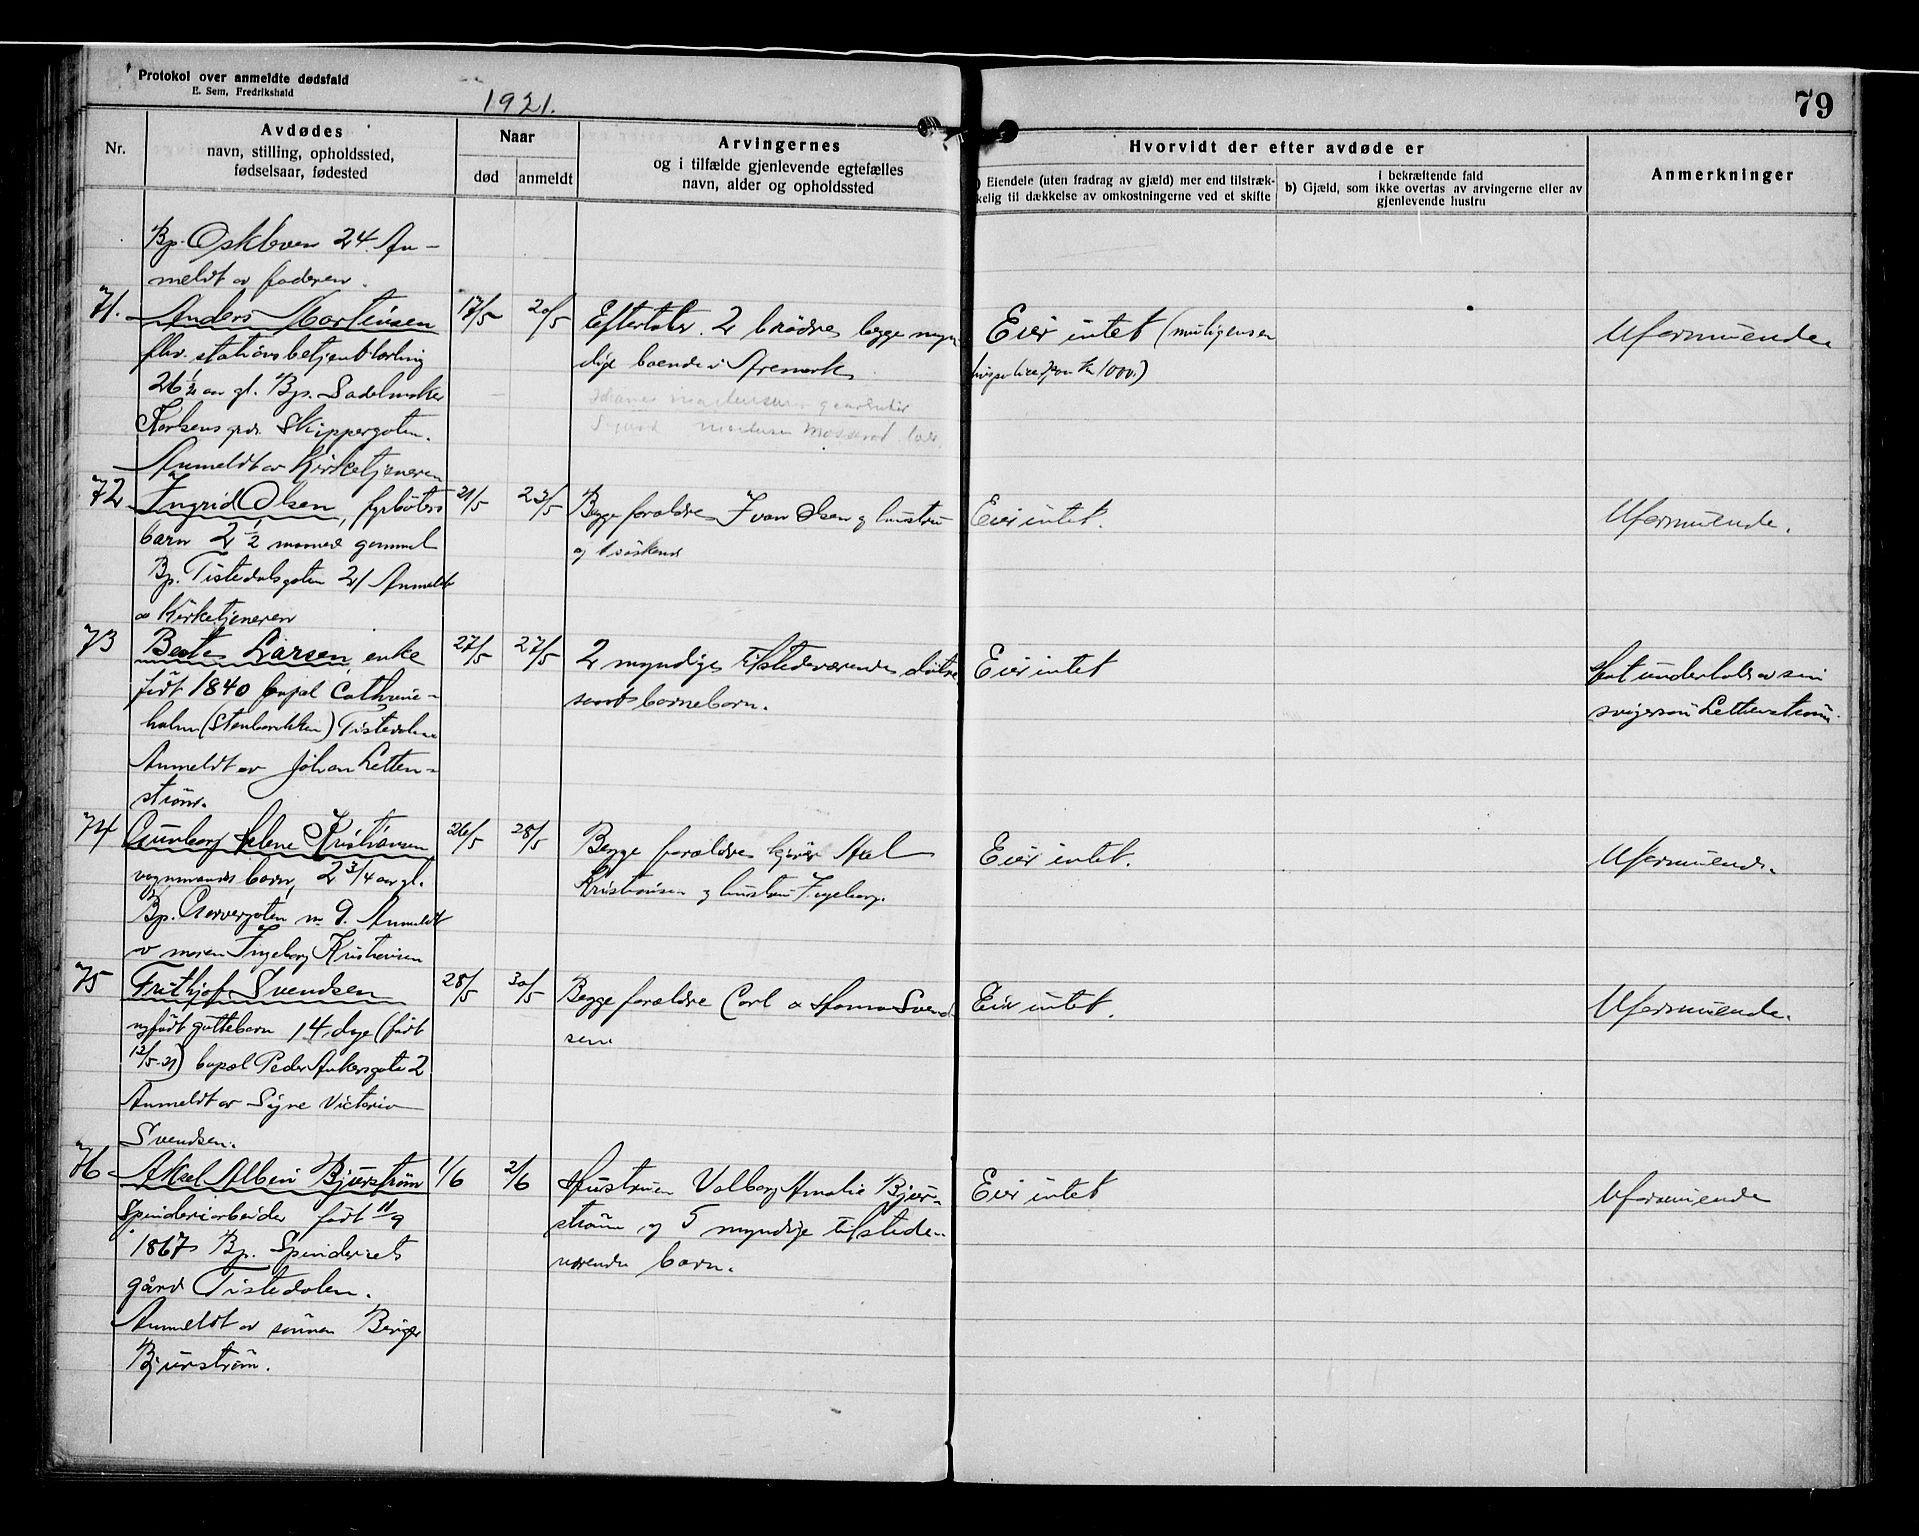 Protokol over anmeldte dødsfald
E. Sem, Fredrikshald
1921.
79
Nr.
Avdødes
navn, stilling, opholdssted,
fødselsaar, fødested
Naar
død
anmeldt
Arvingernes
og i tilfælde gjenlevende egtefælles
navn, alder og opholdssted
Hvorvidt der efter avdøde er
) Eiendele (uten fradrag av gjæld) mer end tilstræk-
kelig til dækkelse av omkostningerne ved et skifte
i bekræftende fald
b) Gjæld, som ikke overtas av arvingerne eller av
gjenlevende hustru
Anmerkninger
Bp. Oskleven 24. An-
meldt av faderen.
71. Anders Mortensen
fhv. stationsbetjent
26 1/2 aar gl. Bp. Sadelmaker
Karlsens grd. Skippergaten.
Anmeldt av Kirketjeneren
17/5
20/5
Efterlater 2 brødre begge myn-
dige boende i Aremark
Eier intet (muligensen
kr 1000.)
Uformuende.
72 Ingrid Olsen, fyrbøters
barn 2 1/2 maaned gammel
Bp. Tistedalsgaten 21 Anmeldt
av Kirketjeneren
21/5
23/5
Begge forældre Ivan Olsen og hustru
og søskend
Eier intet.
Uformuende.
73 Beate Larsen, enke
født 1840 bopæl Cathrine-
holm (Stenbrikken) Tistedalen
Anmeldt av Johan Letten-
strøm.
27/5
27/5
2 myndige tilstedeværende døtre
samt barnebarn.
Eier intet
Hat underhold av sin
svigersøn Lettenstrøm.
74 Gunborg Helene Kristiansen
vognmands barn, 2 3/4 aar gl.
Bp. Garvergaten nr 9. Anmeldt
av moren Ingeborg Kristiansen
26/5
28/5
Begge forældre kjører Axel
Kristiansen og hustru Ingeborg.
Eier intet.
Uformuende.
75 Frithjof Svendsen
nyfødt guttebarn 14 dage (født
13/5-21) bopæl Peder Ankersgate 2
Anmeldt av Signe Victoria
Svendsen.
28/5
30/5
Begge forældre Carl og Hanna Svend-
sen
Eier intet.
Uformuende.
76 Aksel Albin Bjurstrøm
Spinderiarbeider født 11/9
1867 Bp. Spinderiets
gård Tistedalen.
Anmeldt av sønnen Birger
Bjurstrøm.
1/6
2/6
Hustruen Valborg Amalie Bjur-
strøm og 5 myndige tilstede-
værende barn.
Eier intet
Uformuende